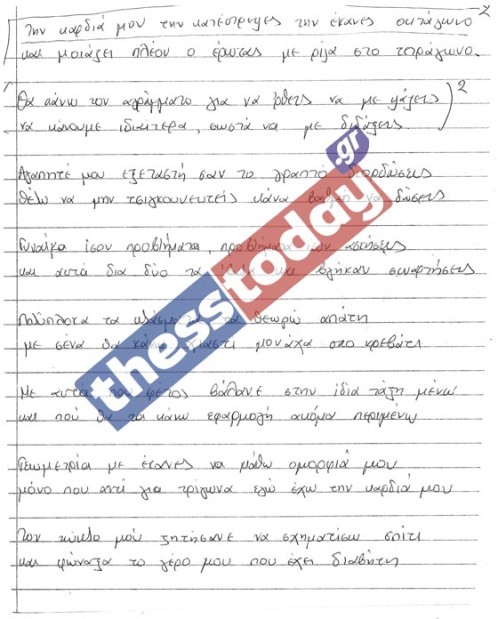 Την καρδιά μου την κατέστρεψες την έκανες οκτάγωνο 2
και μοιάζει πλέον ο έρωτας με ρίζα στο τετράγωνο.
Θα κάνω τον αγράμματο για να ρθεις να με ψάξεις 2
να κάνουμε ιδιαίτερα, σωστά να με διδάξεις.
Αγαπητέ μου εξεταστή σαν το γραπτό διορθώσεις
θέλω να μην τσιγκουνευτείς κάνα βαθμό να δώσεις
Γυναίκα ίσον προβλήματα, προβλήματα ίσον ασκήσεις
και αυτά δια δύο τα και βγήκαν συναρτήσεις
Πολύπλοκα τα κλάσματα τα θεωρώ απάτη
με σένα θα κάνω μονάχα στο κρεβάτι
Με αυτά που φέτος βάλανε στην ίδια τάξη μένω
και πού θα τα κάνω εφαρμογή ακόμα περιμένω
Γεωμετρία με έκανες να μάθω ομορφιά μου
μόνο που αντί για τρίγωνα εγώ έχω την καρδιά μου
Τον κύκλο μού ζητήσανε να σχηματίσω σπίτι
και φώναξα το γέρο μου που έχει διαβήτη
thesstoday.gr